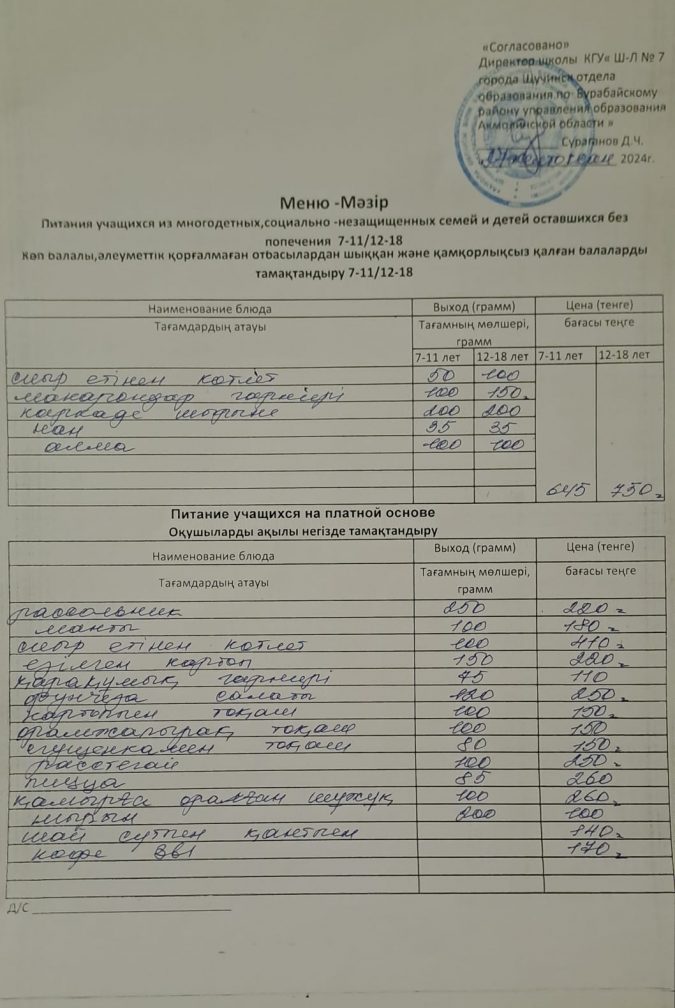 «Согласовано»
Директор школы КГУ« Ш-Л № 7
города Щучинск отдела
образования по Бурабайскому
району управления образования
Акмолинской области »
Сураганов Д.Ч.
2024г.
Меню -Мәзір
Питания учащихся из многодетных,социально -незащищенных семей и детей оставшихся без
попечения 7-11/12-18
Көп балалы,әлеуметтік қорғалмаған отбасылардан шыққан және қамқорлықсыз қалған балаларды
тамақтандыру 7-11/12-18
Наименование блюда Выход (грамм) Цена (тенге)
Тағамдардың атауы Тағамның мөлшері, грамм бағасы теңге
7-11 лет 12-18 лет 7-11 лет 12-18 лет
сиыр етінен котлет 50 100
макарондар гарнирі 100 150
каркаде шырыны 200 200
нан 35 35
алма 100 100
645 750
Питание учащихся на платной основе
Оқушыларды ақылы негізде тамақтандыру
Наименование блюда Выход (грамм) Цена (тенге)
Тағамдардың атауы Тағамның мөлшері, грамм бағасы теңге
рассольник 250 220
манты 100 180
сиыр етінен котлет 100 410
езілген картоп 150 220
қарақұмық гарнирі 75 110
фунчеза салаты 120 250
картоппен тоқаш 100 150
орамжапырақ тоқаш 100 150
сгущенкамен тоқаш 80 150
расстегай 100 250
пицца 85 260
қамырға оралған шұжұқ 100 260
шырын 200 100
шай сүтпен қантпен 140
кофе 3в1 170
Д/С